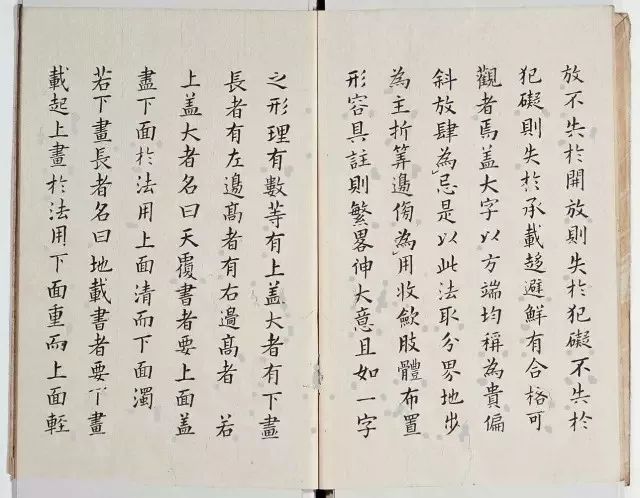 放不失於開放則失於犯礙不失於
犯礙則失於承載趍避鮮有合格可
觀者焉盖大字以方端均稱為貴偏
斜放肆為忌是以此法取分界地步
為主折筭邊傍為用收斂肢體布置
形容具註則繁畧伸大意且如一字
之形理有數等有上盖大者有下畫
長者有左邊髙者有右邊髙者 若
上盖大者名曰天覆書者要上面盖
盡下面於法用上面清而下面濁
若下畫長者名曰地載書者要下畫
載起上畫於法用下面重而上面輕